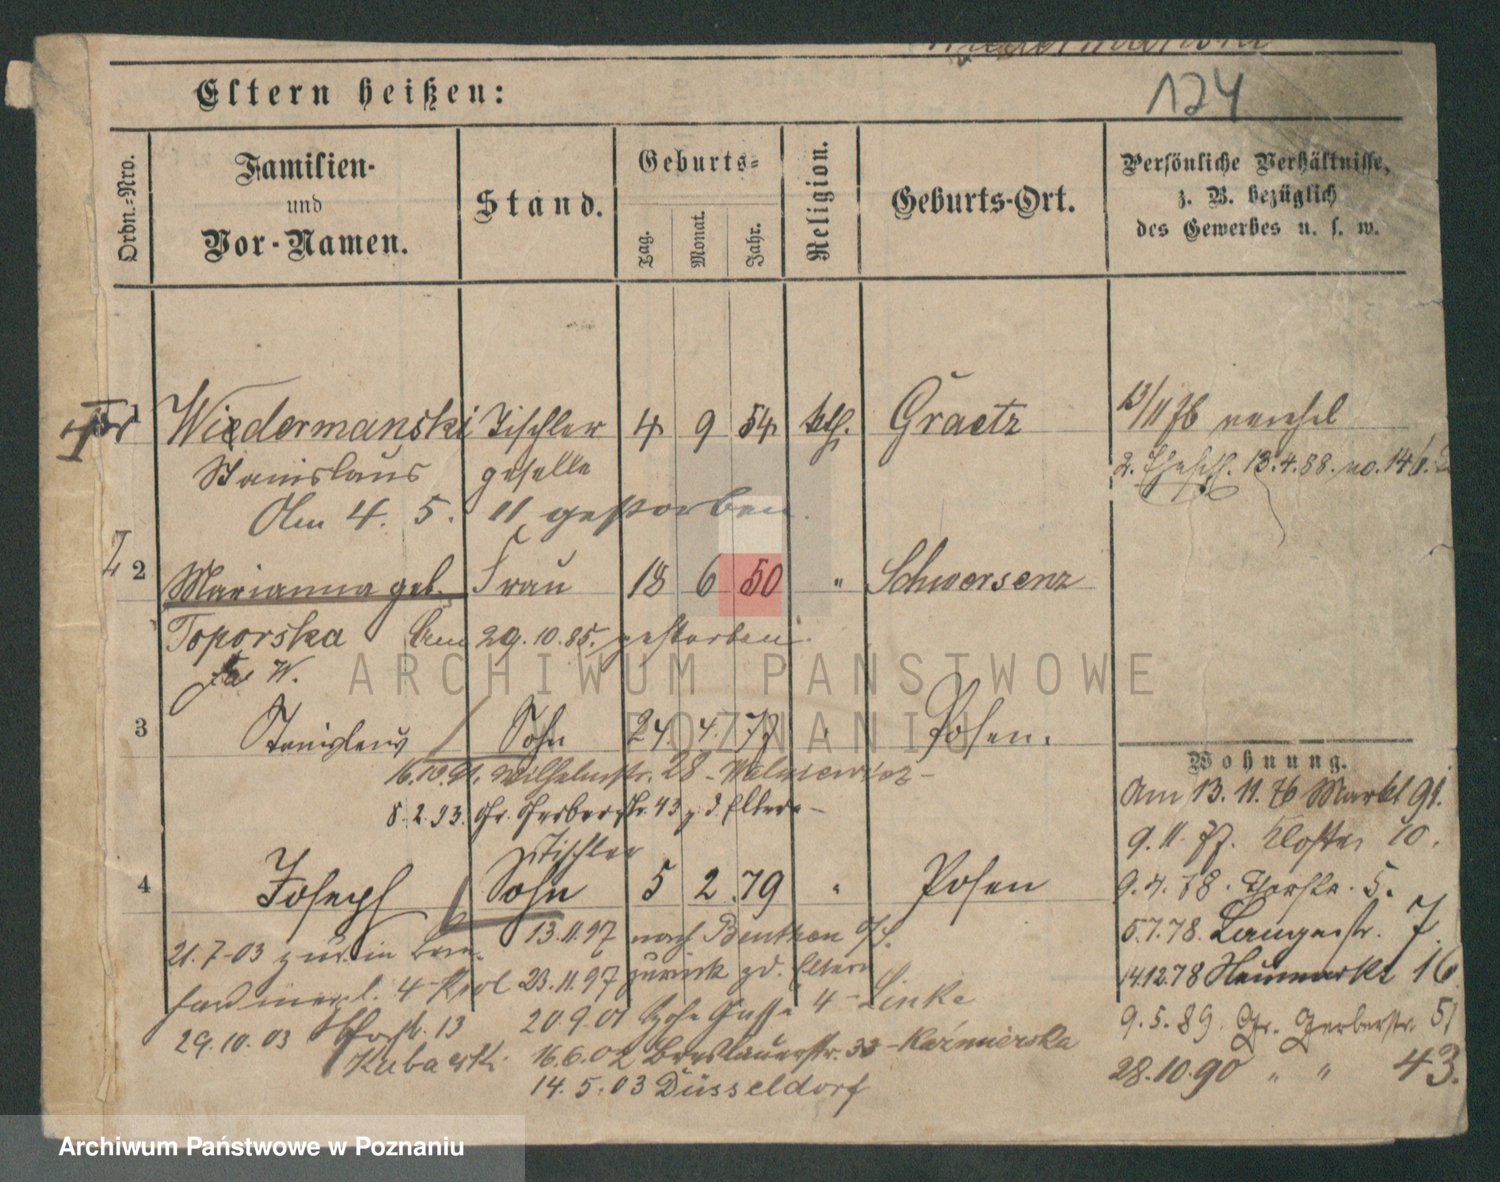 124
Eltern heißen:
Ordn.-Nro.
Familien-
und
Vor-Namen.
Stand.
Geburts-
Tag.
Monat.
Jahr.
Religion.
Geburts-Ort.
Persönliche Verhältnisse,
z. B. bezüglich
des Gewerbes u. s. w.
1 Wiedermanski Tischler 4 9 54 kth. Graetz 13/11 76
Stanislaus geselle 2. 13.4.88. no. 146.
Am 4. 5. 11 gestorben.
2 Marianna geb. Frau 18 6 50 " Schwersenz
Toporska Am 29.10.85. gestorben.
W.
3 Stanislaus Sohn 24. 4. 77 " Posen.
16.10.91. Wilhelmstr. 28 -
8.2.93. Gr. Gerberstr. 43 z. d. Eltern -
Tischler
4 Joseph Sohn 5 2 79 " Posen
13.11.97 nach Beuthen O/S.
21.7.03 zur. in
23.11.97 zurück z d. Eltern
4 Krol
20.9.01 Hohe Gasse 4 - Linke
29.10.03 13
Kubacki.
16.6.02 Breslauerstr. 33 - Kaźmierska
14.5.03 Düsseldorf
Wohnung.
Am 13.11.76 Markt 91.
9.11.77. Kloster 10.
9.4.78. 5.
5.7.78. Langestr. 7.
14.12.78 Neumarkt 16
9.5.89. Gr. Gerberstr. 51
28.10.90 " " 43.
ARCHIWUM PAŃSTWOWE
W POZNANIU
Archiwum Państwowe w Poznaniu